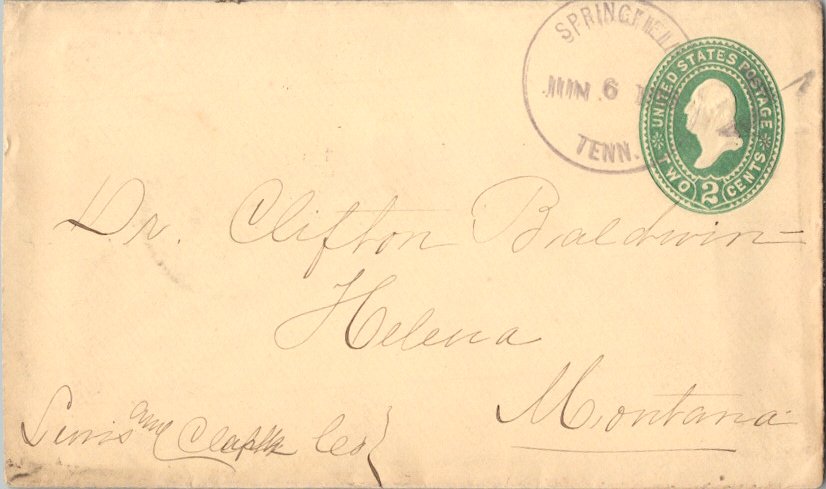 SPRINGFIELD
JUN 6 1
TENN.
UNITED STATES POSTAGE
TWO 2 CENTS
Dr. Clifton Baldwin
Helena
Montana
Lewis and Clark Co